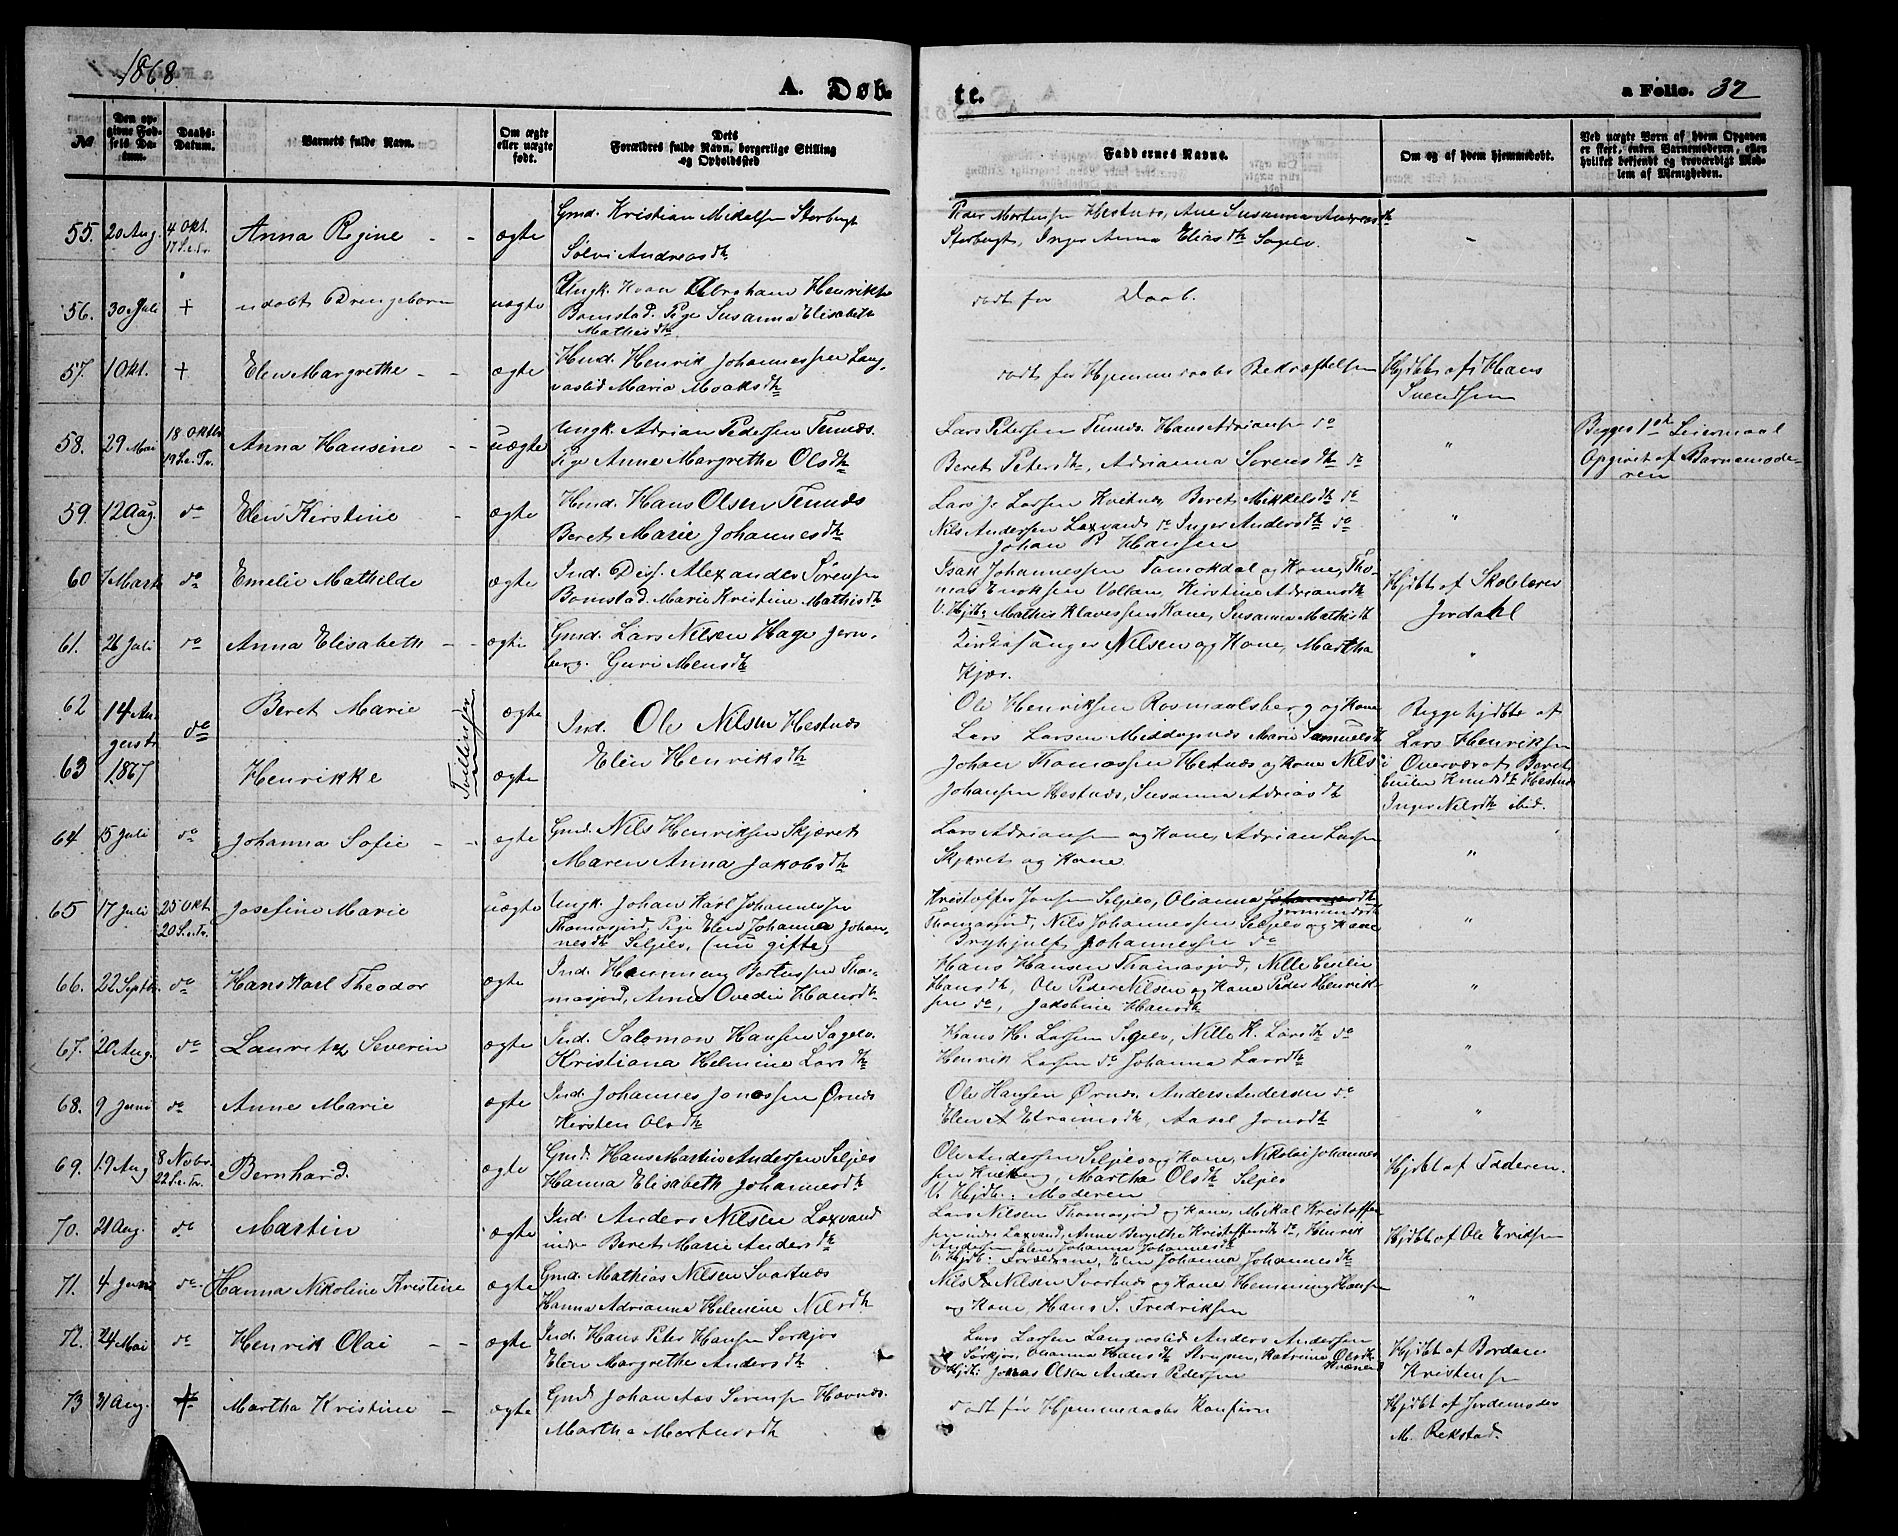 1868
A. Døb-
te.
a Folio. 32
№
Den op-
givne Fød-
sels Da-
tum.
Daabs-
Datum.
Barnets fulde Navn.
Om ægte
eller uægte
født.
Dets
Forældres fulde Navn, borgerlige Stilling
og Opholdssted
Faddernes Navne.
Om og af hvem hjemmedøbt.
Ved uægte Børn af hvem Opgaven
er skeet, enten Barnemoderen, eller
hvilket bekjendt og troværdigt Med-
lem af Menigheden.
55. 20 Aug. 4 Okt. 17 S.e.Tr. Anna Regine - - ægte
Gmd. Kristian Mikalsen Storbugt
Sølvi Andreasdtr
Peder Mortensen Hestnæs, Ane Susanna Andreasdtr
Storbugt, Inger Anna Eliasdtr Sagelv.
56. 30 Juli + udøbt Drengebarn uægte
Ungk. Kvæn Abraham Henriksen
Bomstad. Pige Susanna Elisabeth
Mathisdtr
død før Daab.
57. 1 Okt. + Elen Margrethe - - ægte
Hmd. Henrik Johannessen Lang-
vaslid Maria Moaksdtr
død før Hjemmedaabs Bekræftelsen
Hjdbt af Hans
Svendsen
58. 29 Mai 18 Oktbr 19 S.e.Tr. Anna Hansine - - uægte
Ungk. Adrian Pedersen Tennæs.
Pige Anne Margrethe Olsdtr
Lars Petersen Tennæs. Hans Adriansen do
Beret Petersdtr, Adrianna Sørensdtr do
"
Begges 1ste Leiermaal
Opgivet af Barnemode-
ren
59. 12 Aug. do Elen Kirstine - ægte
Hmd. Hans Olsen Tennæs
Beret Marie Johannesdtr
Lars J. Larsen Kvetnæs, Beret Mikkelsdtr do
Nils Andersen Laxvand do Inger Andersdtr do
Johan P. Hansen
"
60 7 Marts do Emelie Mathilde ægte
Ind. Diss. Alexander Sørensen
Bomstad. Marie Kristine Mathisdtr
Isak Johannessen Tamokdal og Kone, Tho-
mas Eriksen Vollan, Kirstine Adriansdtr
V. Hjdb: Mathis Klavessens Kone, Susanna Mathisdtr
Hjdbt af Skolelærer
Jordahl
61. 26 Juli do Anna Elisabeth - - ægte
Gmd. Lars Nilsen Hage Jern-
berg. Guri Mensdtr
Kirkesanger Nilsen og Kone, Martha
Kjær.
"
62 14 Au- do Beret Marie ægte
gusti
63 1867 Henrikke ægte
Tvillinger
Ind. Ole Nilsen Hestnæs
Elen Henriksdtr
Ole Henriksen Rosmaalsberg og Kone
Lars Larsen Middagsnæs Marie Samuelsdtr
Johan Thomassen Hestnæs og Kone Nils
Johansen Hestnæs, Susanna Adriasdtr
Begge hjdbte af
Lars Henriksen
Overværet Beret
Cecilie Knudsdtr Hestnæs
Inger Nilsdtr ibid.
64 15 Juli do Johanna Sofie - - ægte
Gmd. Nils Henriksen Skjæret
Maren Anna Jakobsdtr
Lars Adriansen og Kone, Adrian Larsen
Skjæret og Kone
"
65 17 Juli 25 Okt. 20 S.e.Tr. Josefine Marie uægte
Ungk. Johan Karl Johannessen
Thomasjord, Pige Elen Johanna Johan-
nesdtr Seljelv, (nu gifte)
Kristoffer Jonsen Seljelv, Olianna Jørmundsdtr
Thomasjord, Nils Johannessen Seljelv og Kone
Brynjulf Johannessen do
"
66. 22 Septbr do Hans Karl Theodor ægte
Ind. Hemming Bertussen Tho-
masjord, Anne Ovedie Hansdtr
Hans Hansen Thomasjord, Nille Cecilie
Hansdtr, Ole Peder Nilsen og Kone Peder Henrik-
sen do, Jakobine Hansdtr
"
67. 20 Aug. do Lauretz Severin ægte
Ind. Salomon Hansen Sagelv.
Kristiana Helmine Larsdtr
Hans H. Larsen Sagelv, Nille K. Larsdtr do
Henrik Larsen do Johanna Larsdtr
"
68. 9 Juni do Anne Marie ægte
Ind. Johannes Jonassen Ørnæs
Kirsten Olsdtr
Ole Hansen Ørnæs Anders Andersen do
Elen A Efraimsdtr, Aasel Jonsdtr
"
69. 19 Aug 8 Novbr. 22 S.e.Tr. Bernhard. ægte
Gmd. Hans Martin Andersen Seljelv
Hanna Elisabeth Johannesdtr
Ole Andersen Seljelv og Kone, Nikolai Johannes-
sen, Martha Olsdtr Seljelv
V. Hjdb.: Moderen
Hjdbt af Faderen.
70. 21 Aug. do Martin ægte
Ind. Anders Nilsen Laxvand
indre Beret Marie Andersdtr
Lars Nilsen Thomasjord og Kone, Mikal Kristoffer-
sen indre Laxvand, Anne Bergithe Kristoffersdtr do, Henrik
Andersen Elen Johanna Johannesdtr
V. Hjdb: Forældrene, Elen Johanna Johannesdtr
Hjdbt af Ole Eriksen
71. 4 Juni do. Hanna Nikoline Kristine ægte
Gmd. Mathias Nilsen Svartnæs
Hanna Adrianna Helmine Nilsdtr
Nils Nilsen Svartnæs og Kone, Hemming Hansen
og Kone, Hans S. Fredriksen
"
72. 24 Mai do Henrik Olai - - ægte
Ind. Hans Peter Hansen Sørkjos
Elen Margrethe Andersdtr
Lars Larsen Langvaslid Anders Andersen
Sørkjos, Olianna Hansdtr Strupen, Katrine Olsdtr
V Hjdb: Jonas Olsen Anders Pedersen Kvænen
Hjdbt af Bordan
Kristensen
73 31 Aug. + Martha Kristine - ægte
Gmd. Johan Aas Sørensen Havnæs.
Martha Mortensdtr
død før Hjemmedaabs Konfirm
Hjdbt af Jordemoder
M. Rekstad.